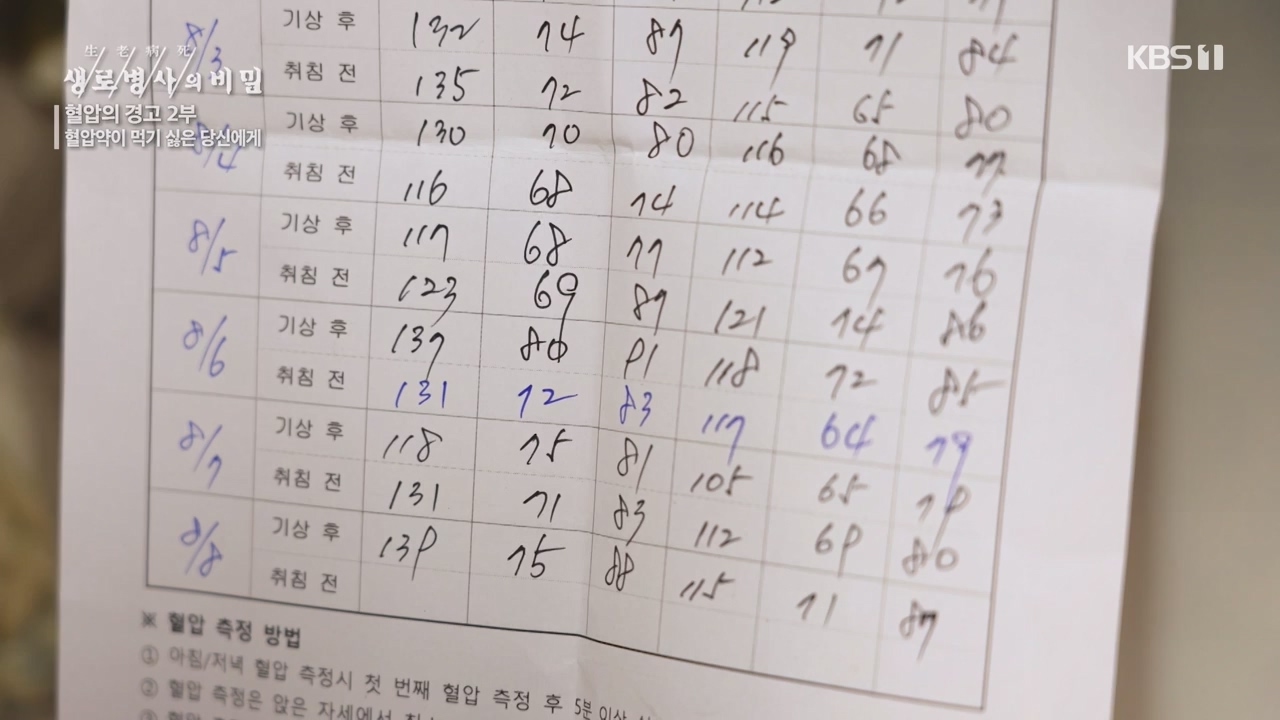 KBS 1
生老病死
생로병사의 비밀
혈압의 경고 2부
혈압약이 먹기 싫은 당신에게
8/3 기상 후 132 74 87 119 71 84
취침 전 135 72 82 115 65 80
8/4 기상 후 130 70 80 116 68 77
취침 전 116 68 74 114 66 73
8/5 기상 후 117 68 77 112 67 76
취침 전 123 69 87 121 74 86
8/6 기상 후 137 80 91 118 72 85
취침 전 131 72 83 117 64 79
8/7 기상 후 118 75 81 105 65 79
취침 전 131 71 83 112 69 80
8/8 기상 후 139 75 88 115 71 87
취침 전
※ 혈압 측정 방법
① 아침/저녁 혈압 측정시 첫 번째 혈압 측정 후 5분 이상
② 혈압 측정은 앉은 자세에서